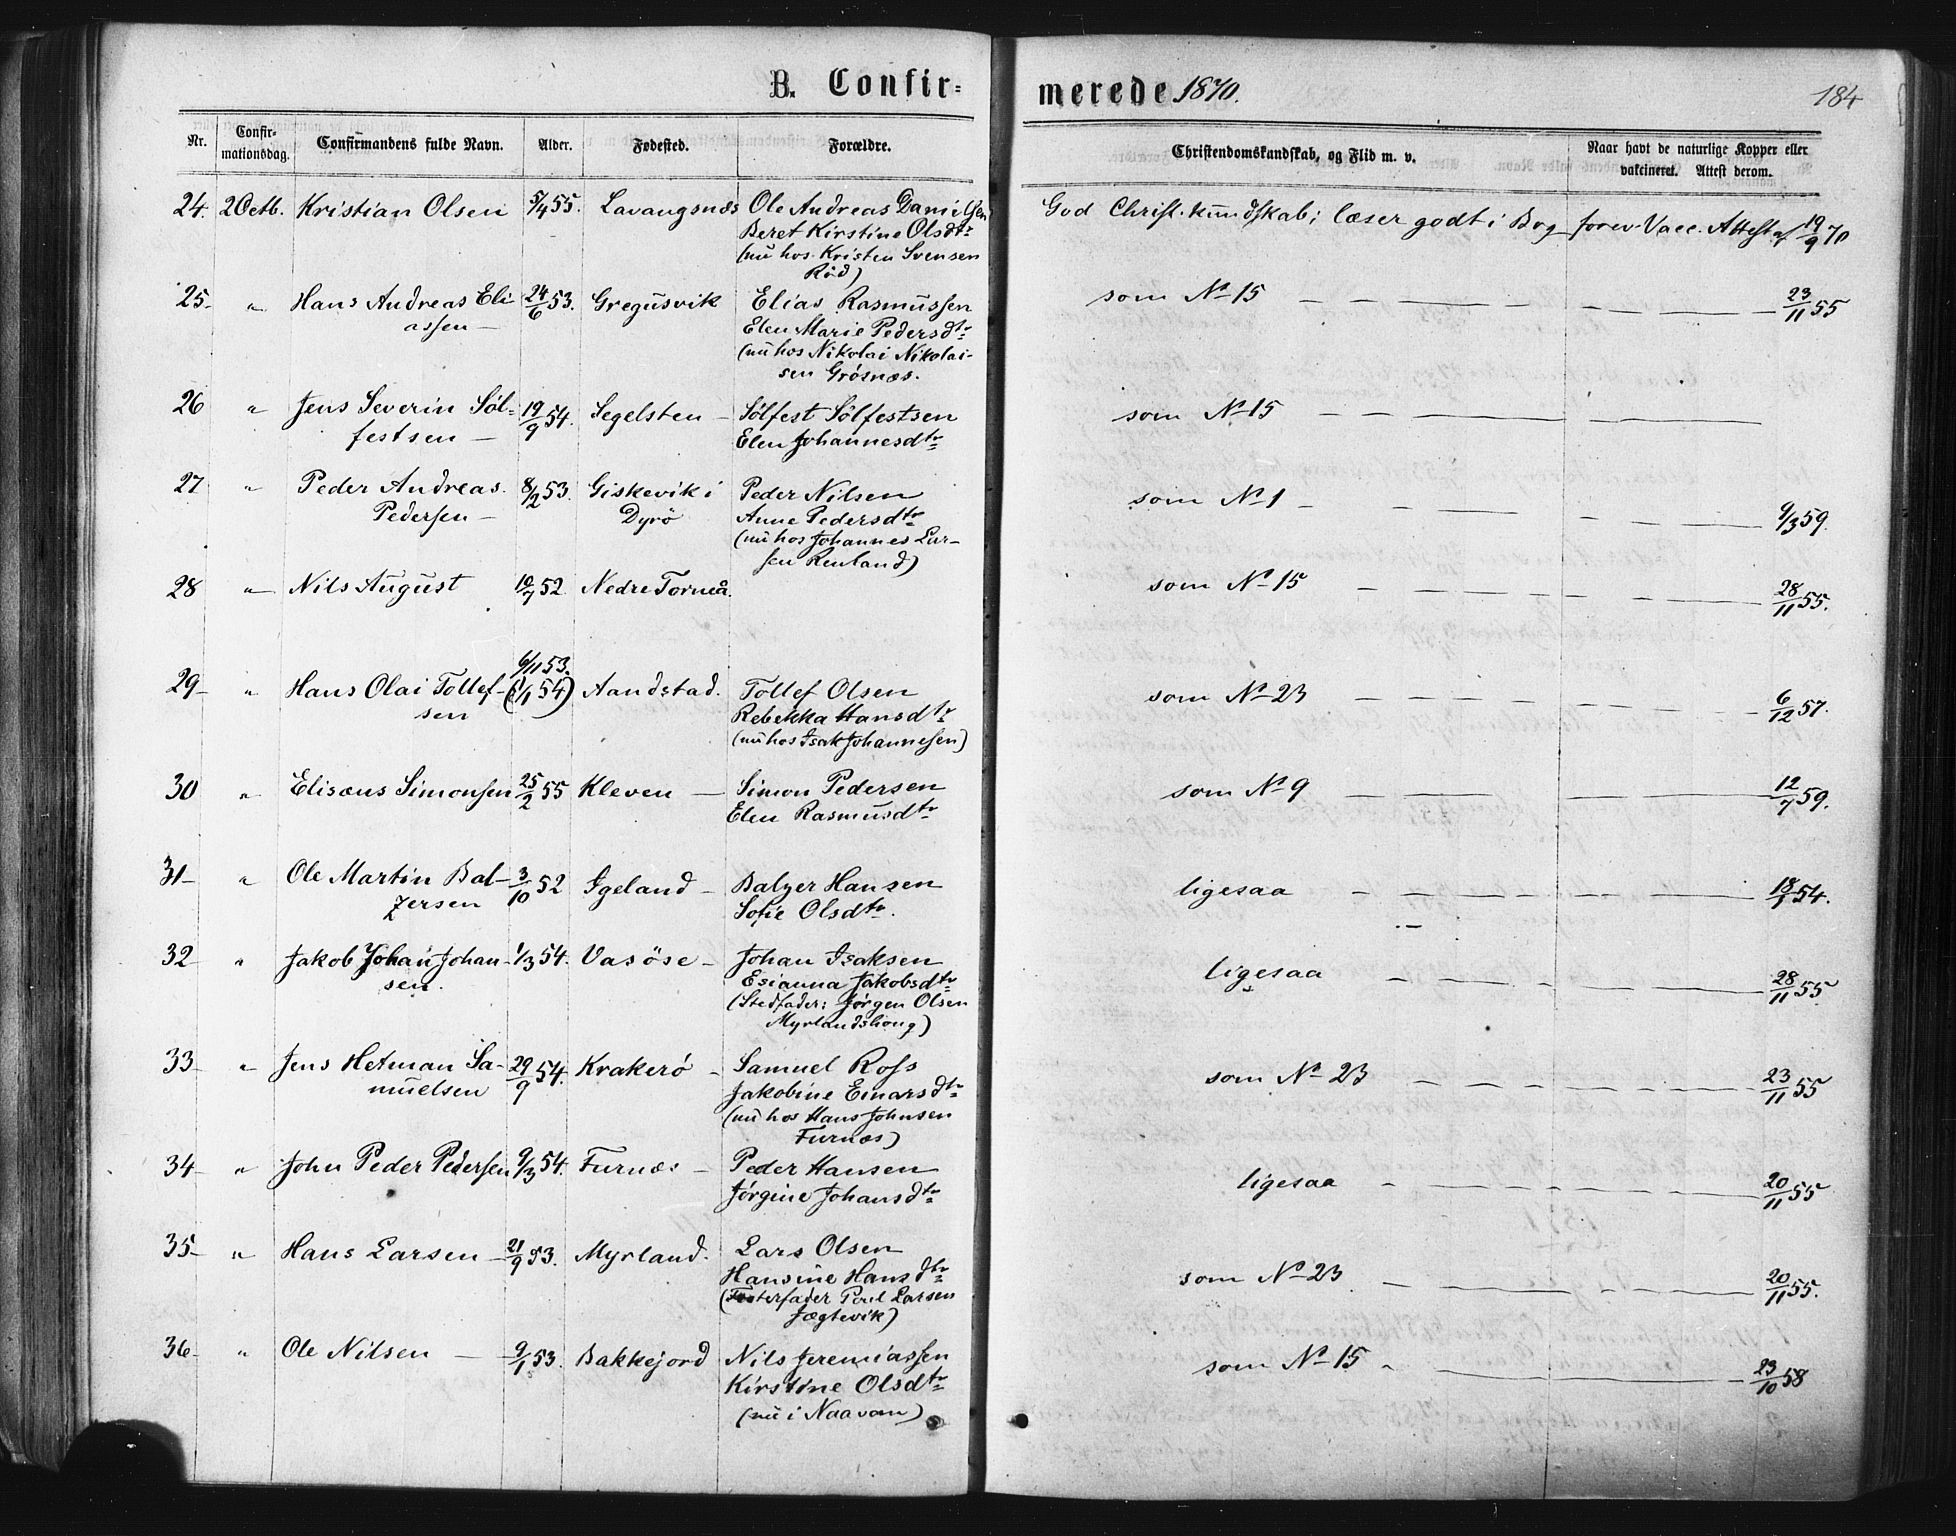 B. Confir-
merede 1870.
184
Nr.
Confir-
mationsdag.
Confirmandens fulde Navn.
Alder.
Fødested.
Forældre.
Christendomskundskab, og Flid m. v.
Naar havt de naturlige Kopper eller
vakcineret. Attest derom.
24. 2 Octb. Kristian Olsen 5/4 55. Lavangsnæs Ole Andreas Danielsen God Christ. kundskab; læser godt i Bog forev. Vacc. Attest af 19/9 70
Beret Kirstine Olsdtr
(nu hos Kristen Svensen
Rød)
25- " Hans Andreas Eli- 24/6 53. Gregusvik Elias Rasmussen som No 15 23/11 55
assen — Elen Marie Pedersdtr
(nu hos Nikolai Nikolai-
sen Grøsnæs.
26 " Jens Severin Søl- 19/9 54. Segelsten — Sølfest Sølfestsen som No 15
festsen — Elen Johannesdtr
27 " Peder Andreas 8/2 53. Giskevik i Peder Nilsen som No 1 9/3 59.
Pedersen — Dyrö Anne Pedersdtr
(nu hos Johannes Lar-
sen Renland)
28 " Nils August 10/7 52. Nedre Torneå. som No 15 28/11 55.
6/11 53.
29- " Hans Olai Tollef- (1/1 54) Aandstad. Tollef Olsen som No 23 6/12 57.
sen Rebekka Hansdtr
(nu hos Isak Johannesen)
30 " Elisæus Simonsen 25/2 55 Kleven — Simon Pedersen som No 9 12/7 59.
Elen Rasmusdtr
31- " Ole Martin Bal- 3/10 52 Igeland — Balzer Hansen ligesaa 18/1 54.
zersen Sofie Olsdtr.
32- " Jakob Johan Johan- 1/3 54. Vasöse — Johan Isaksen ligesaa 28/11 55
sen. Esianna Jakobsdtr
(Stedfader: Jørgen Olsen
Myrlandshoug)
33- " Jens Hetman Sa- 29/9 54. Krakerö — Samuel Ross som No 23 23/11 55
muelsen Jakobine Einarsdtr
(nu hos Hans Johnsen
Furnæs)
34- " John Peder Pedersen 9/3 54. Furnæs — Peder Hansen ligesaa 20/11 55
Jørgine Johansdtr
35- " Hans Larsen — 21/9 53. Myrland. Lars Olsen som No 23 20/11 55.
Hansine Hansdtr
(Fosterfader Poul Larsen
Jægtevik)
36- " Ole Nilsen — 9/1 53. Bakkejord Nils Jeremiassen som No 15 23/10 58
Kirstine Olsdtr
(nu i Naavam)